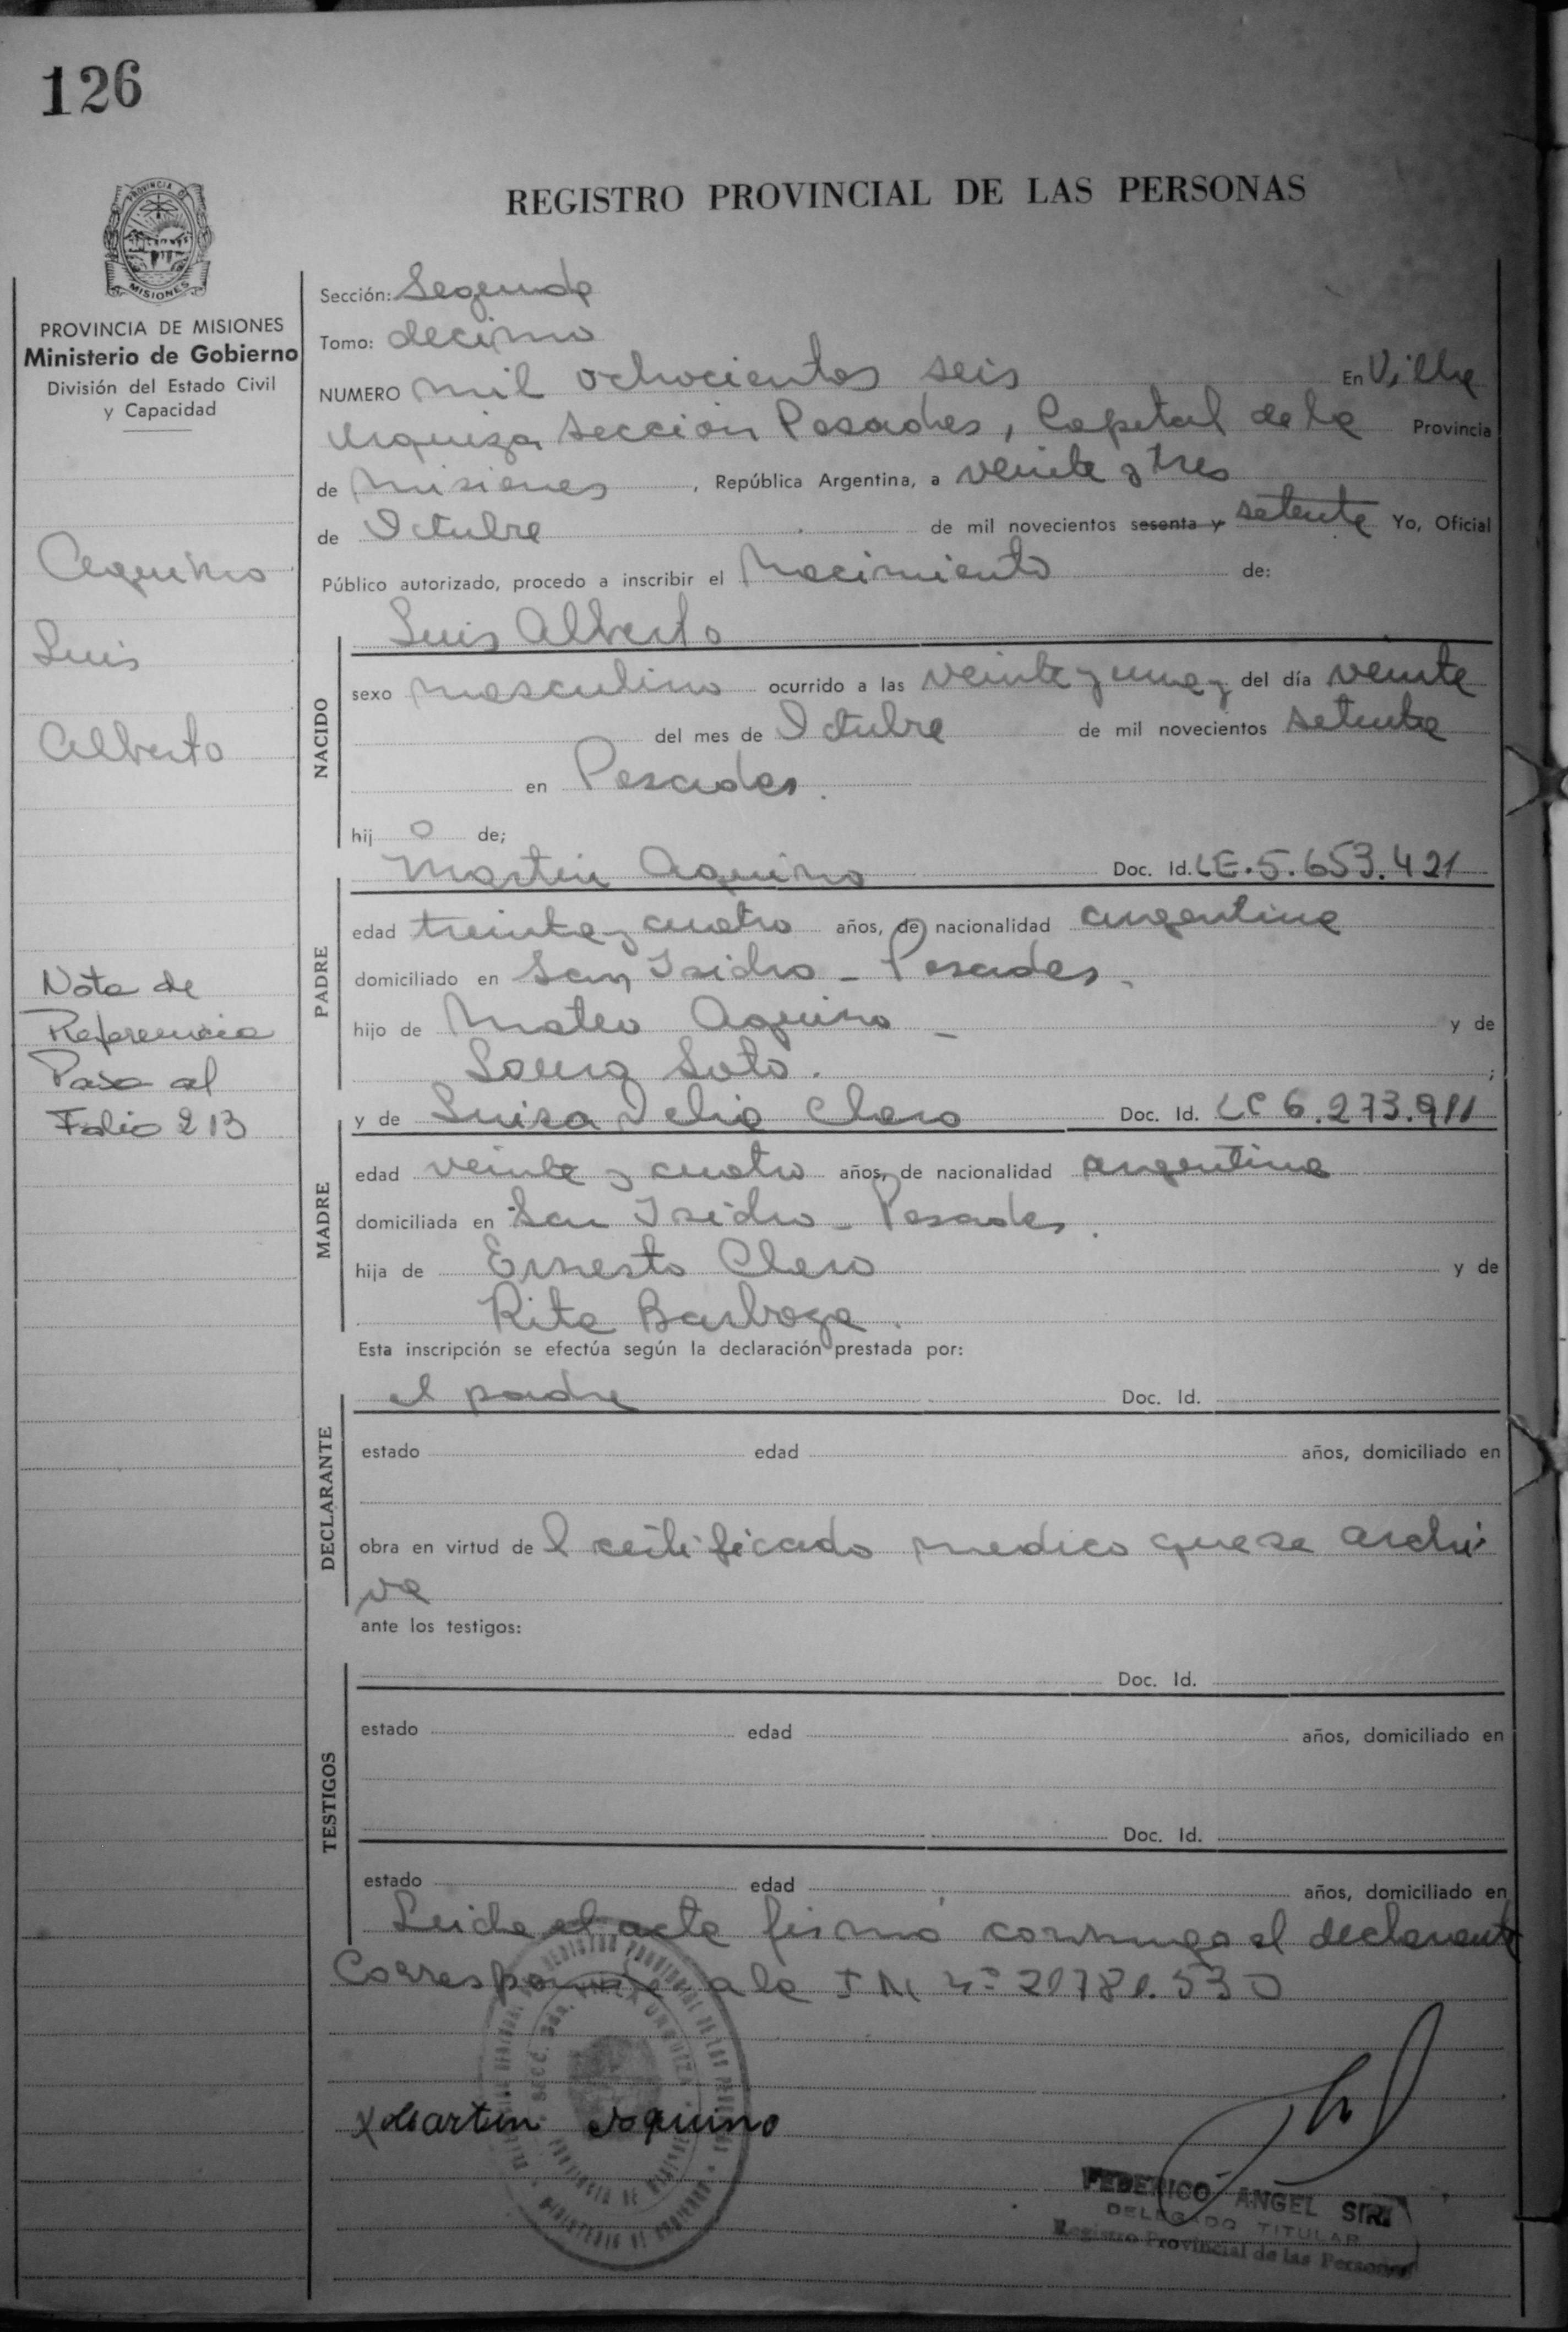 126
REGISTRO PROVINCIAL DE LAS PERSONAS
MISIONES
PROVINCIA DE MISIONES
Ministerio de Gobierno
División del Estado Civil
y Capacidad
Aquino
Luis
Alberto
Nota de
Referencia
Pasa al
Folio 213
Sección: Segunda
Tomo: decimo
NUMERO mil ochocientos seis En Villa
Urquiza Sección Posadas, Capital de la Provincia
de Misiones, República Argentina, a veinte y tres
de Octubre de mil novecientos sesenta y setenta Yo, Oficial
Público autorizado, procedo a inscribir el Nacimiento de:
Luis Alberto
NACIDO
sexo masculino ocurrido a las veinte y una y del día veinte
del mes de Octubre de mil novecientos setenta
en Posadas.
hij o de;
Martin Aquino Doc. Id. LE.5.653.421
PADRE
edad treinta y cuatro años, de nacionalidad argentina
domiciliado en San Isidro - Posadas.
hijo de Mateo Aquino - y de
Soto.
y de Luisa Doc. Id. LC 6.273.911
MADRE
edad veinte y cuatro años, de nacionalidad argentina
domiciliada en San Isidro - Posadas.
hija de Ernesto y de
Rita Barboza.
Esta inscripción se efectúa según la declaración prestada por:
el padre Doc. Id.
DECLARANTE
estado edad años, domiciliado en
obra en virtud de l certificado medico que se archi
va
ante los testigos:
Doc. Id.
TESTIGOS
estado edad años, domiciliado en
Doc. Id.
estado edad años, domiciliado en
Leida el acta firmó conmigo el declarante
Corresponde a la
Martin Aquino
FEDERICO ANGEL SIRI
DELEGADO TITULAR
Registro Provincial de las Personas